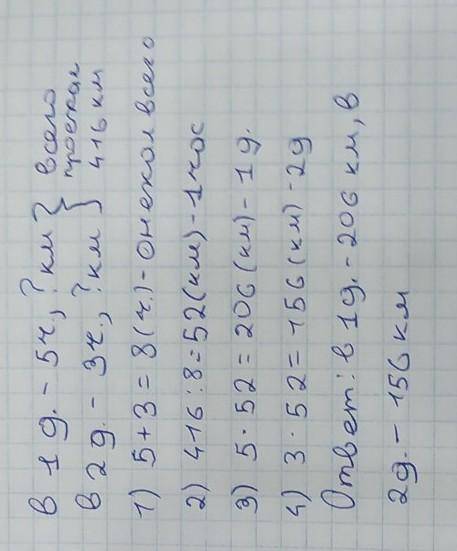 В 1 д. - 5ч., ? км } всего
В 2 д. - 3ч., ? км } проехал 416 км
1) 5+3=8(ч.)-он ехал всего
2) 416:8=52(км)-1час
3) 5·52=206(км)-1д.
4) 3·52=156(км)-2д
Ответ: в 1д.-206 км, в
2д.-156 км